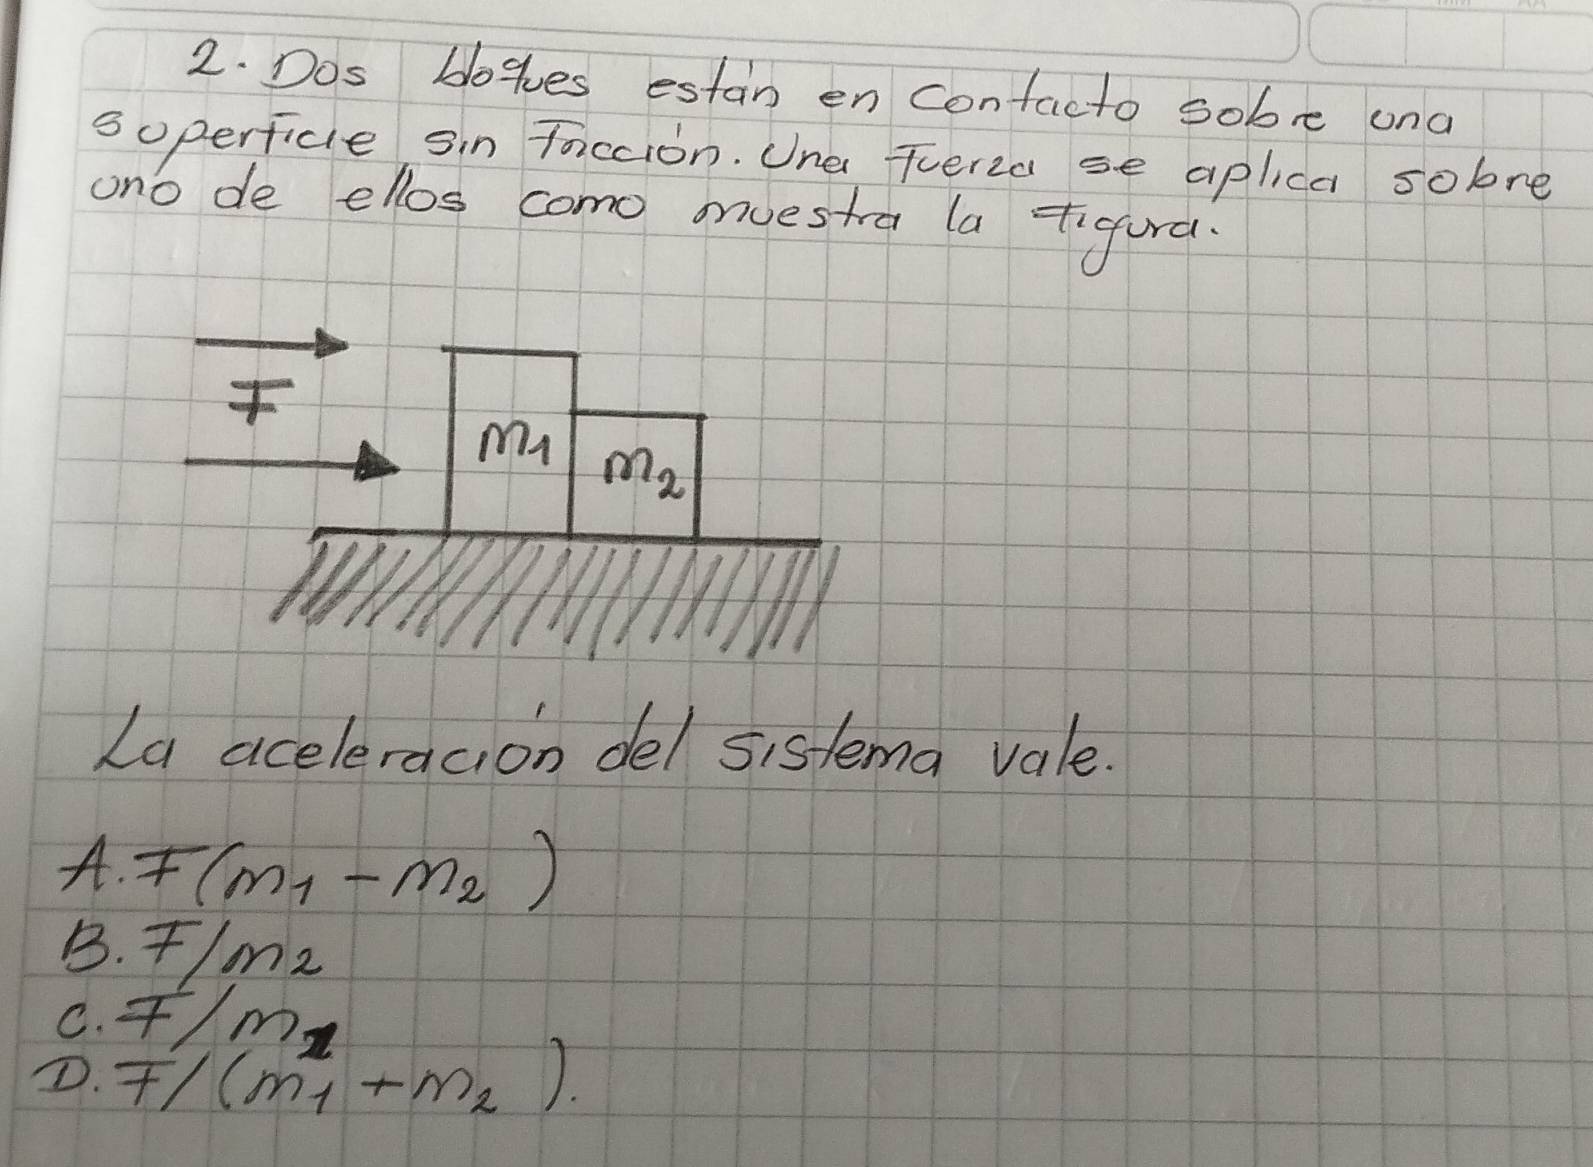 2. Dos bloques están en contacto sobre una
superficie sin fricción. Una fuerza se aplica sobre
uno de ellos como muestra la figura.
F
m1
m2
La aceleración del sistema vale.
A. F(m1 - m2)
B. F/m2
C. F/m1
D. F/(m1 + m2).